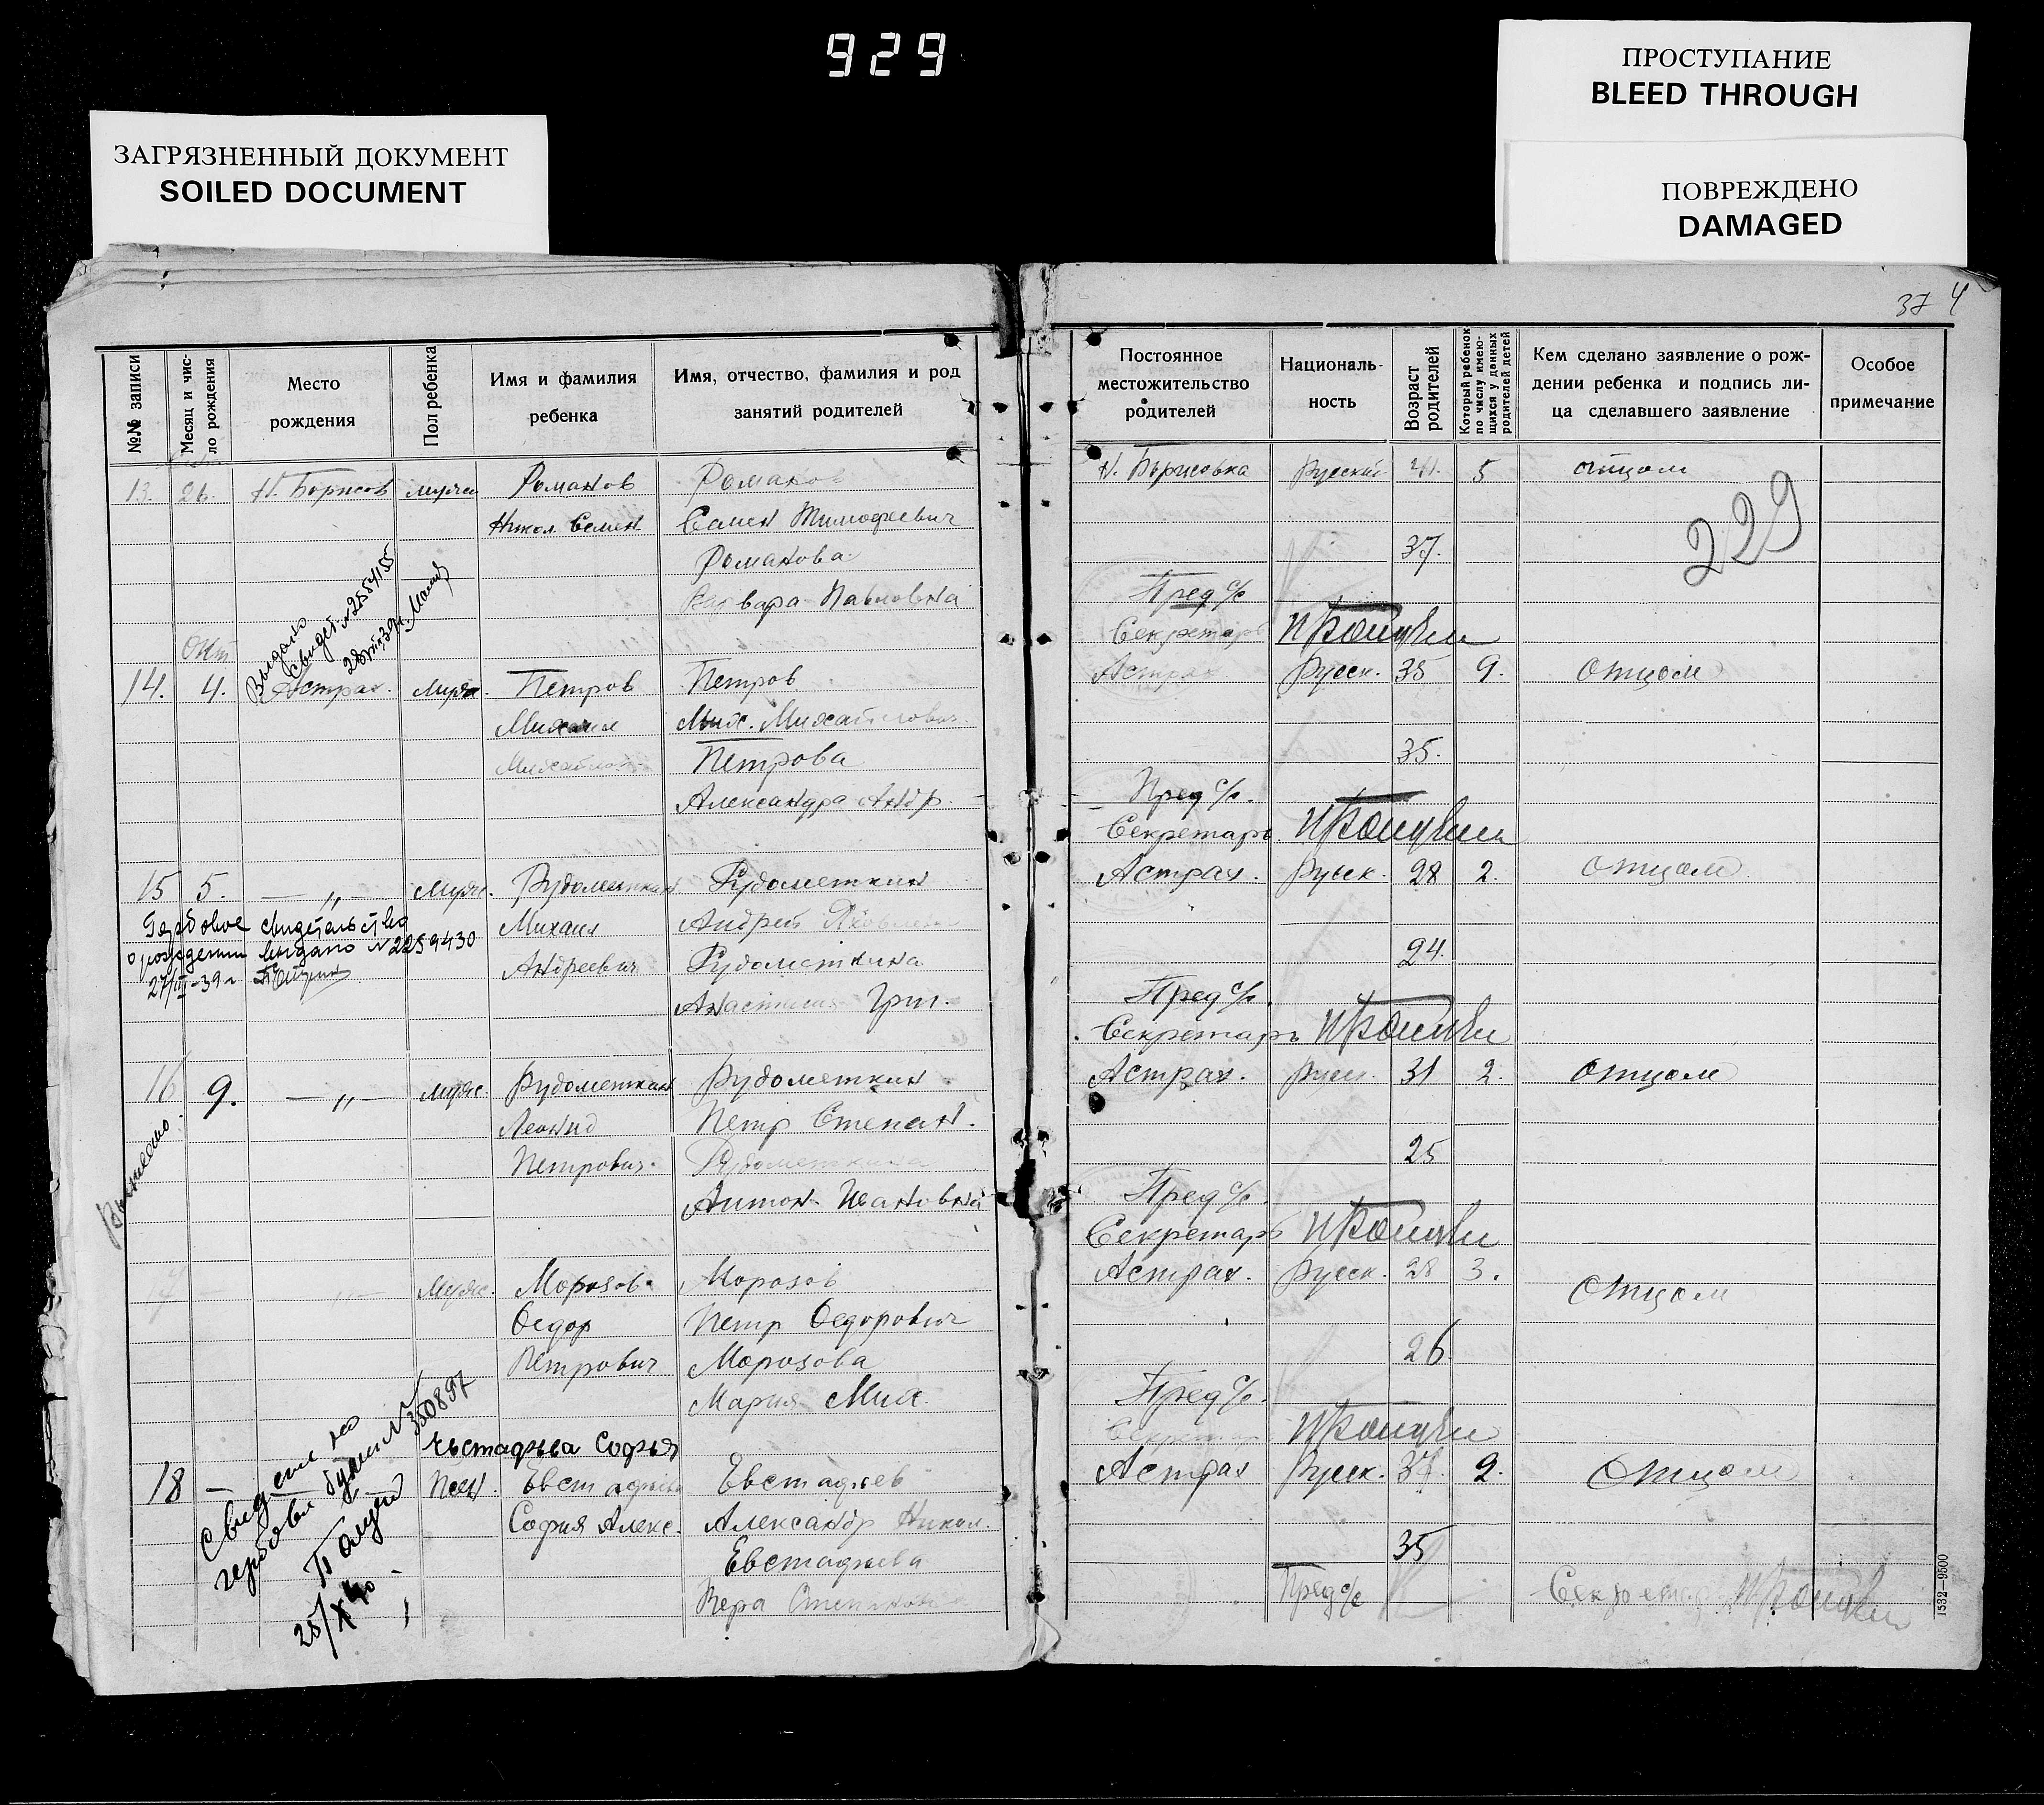 929
ПРОСТУПАНИЕ
BLEED THROUGH
ЗАГРЯЗНЕННЫЙ ДОКУМЕНТ
SOILED DOCUMENT
ПОВРЕЖДЕНО
DAMAGED
37 4
№№ записи
Месяц и чис-
ло рождения
Место
рождения
Пол ребенка
Имя и фамилия
ребенка
Имя, отчество, фамилия и род
занятий родителей
Постоянное
местожительство
родителей
Националь-
ность
Возраст
родителей
Который ребенок
по числу имею-
щихся у данных
родителей детей
Кем сделано заявление о рож-
дении ребенка и подпись ли-
ца сделавшего заявление
Особое
примечание
13. 26. Н. Борисов Романов Романов Н. Борисовка Русский 5 отцом
Никол. Семен. Семен Тимофеевич
229
Романова 37.
Варвара Павловна Пред с/с
Выдано
свидет. №2554155
Секретарь
Окт
14. 4. Астрах. Петров Петров Астрах Русск. 35 9. Отцом
Михаил Мих. Михайлович
Михайлов. Петрова 35.
Александра Андр. Пред с/с.
Секретарь
15 5. — „ — Мужс. Рудометкин Рудометкин Астрах. Русск. 28 2. Отцом
Гербовое свидетельство
о рождении выдано №2259430
27/III-39г
Михаил Андрей
Андреевич Рудометкина 24.
Анастасия Григ. Пред с/с.
Секретарь
16 9. — „ — мужс. Рудометкин Рудометкин Астрах. Русск. 31 2. Отцом
Леонид Петр Степан.
Петрович. Рудометкина 25
Антон. Ивановна Пред с/с.
Секретарь
17 — „ — Мужс. Морозов Морозов Астрах. Русск. 28 3. Отцом
Федор Петр Федорович
Петрович Морозова 26.
Мария Мих. Пред с/с.
Свидет на
гербовой бумаге №
350897
25/X 40
Секретарь
Евстафьева Софья
18 — Жен. Евстафьева Евстафьев Астрах Русск. 37. 2. Отцом
София Алекс. Александр Никол.
Евстафьева 35
Вера Степановна Пред с/с Секретарь
1532—9500